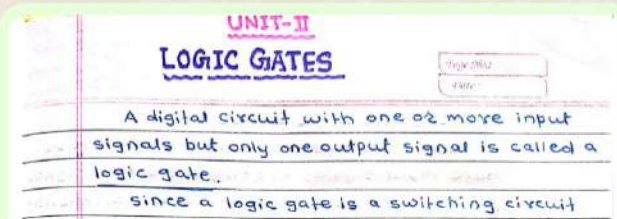 UNIT-II
LOGIC GATES
Page No:
Date:
A digital circuit with one or more input
signals but only one output signal is called a
logic gate.
since a logic gate is a switching circuit